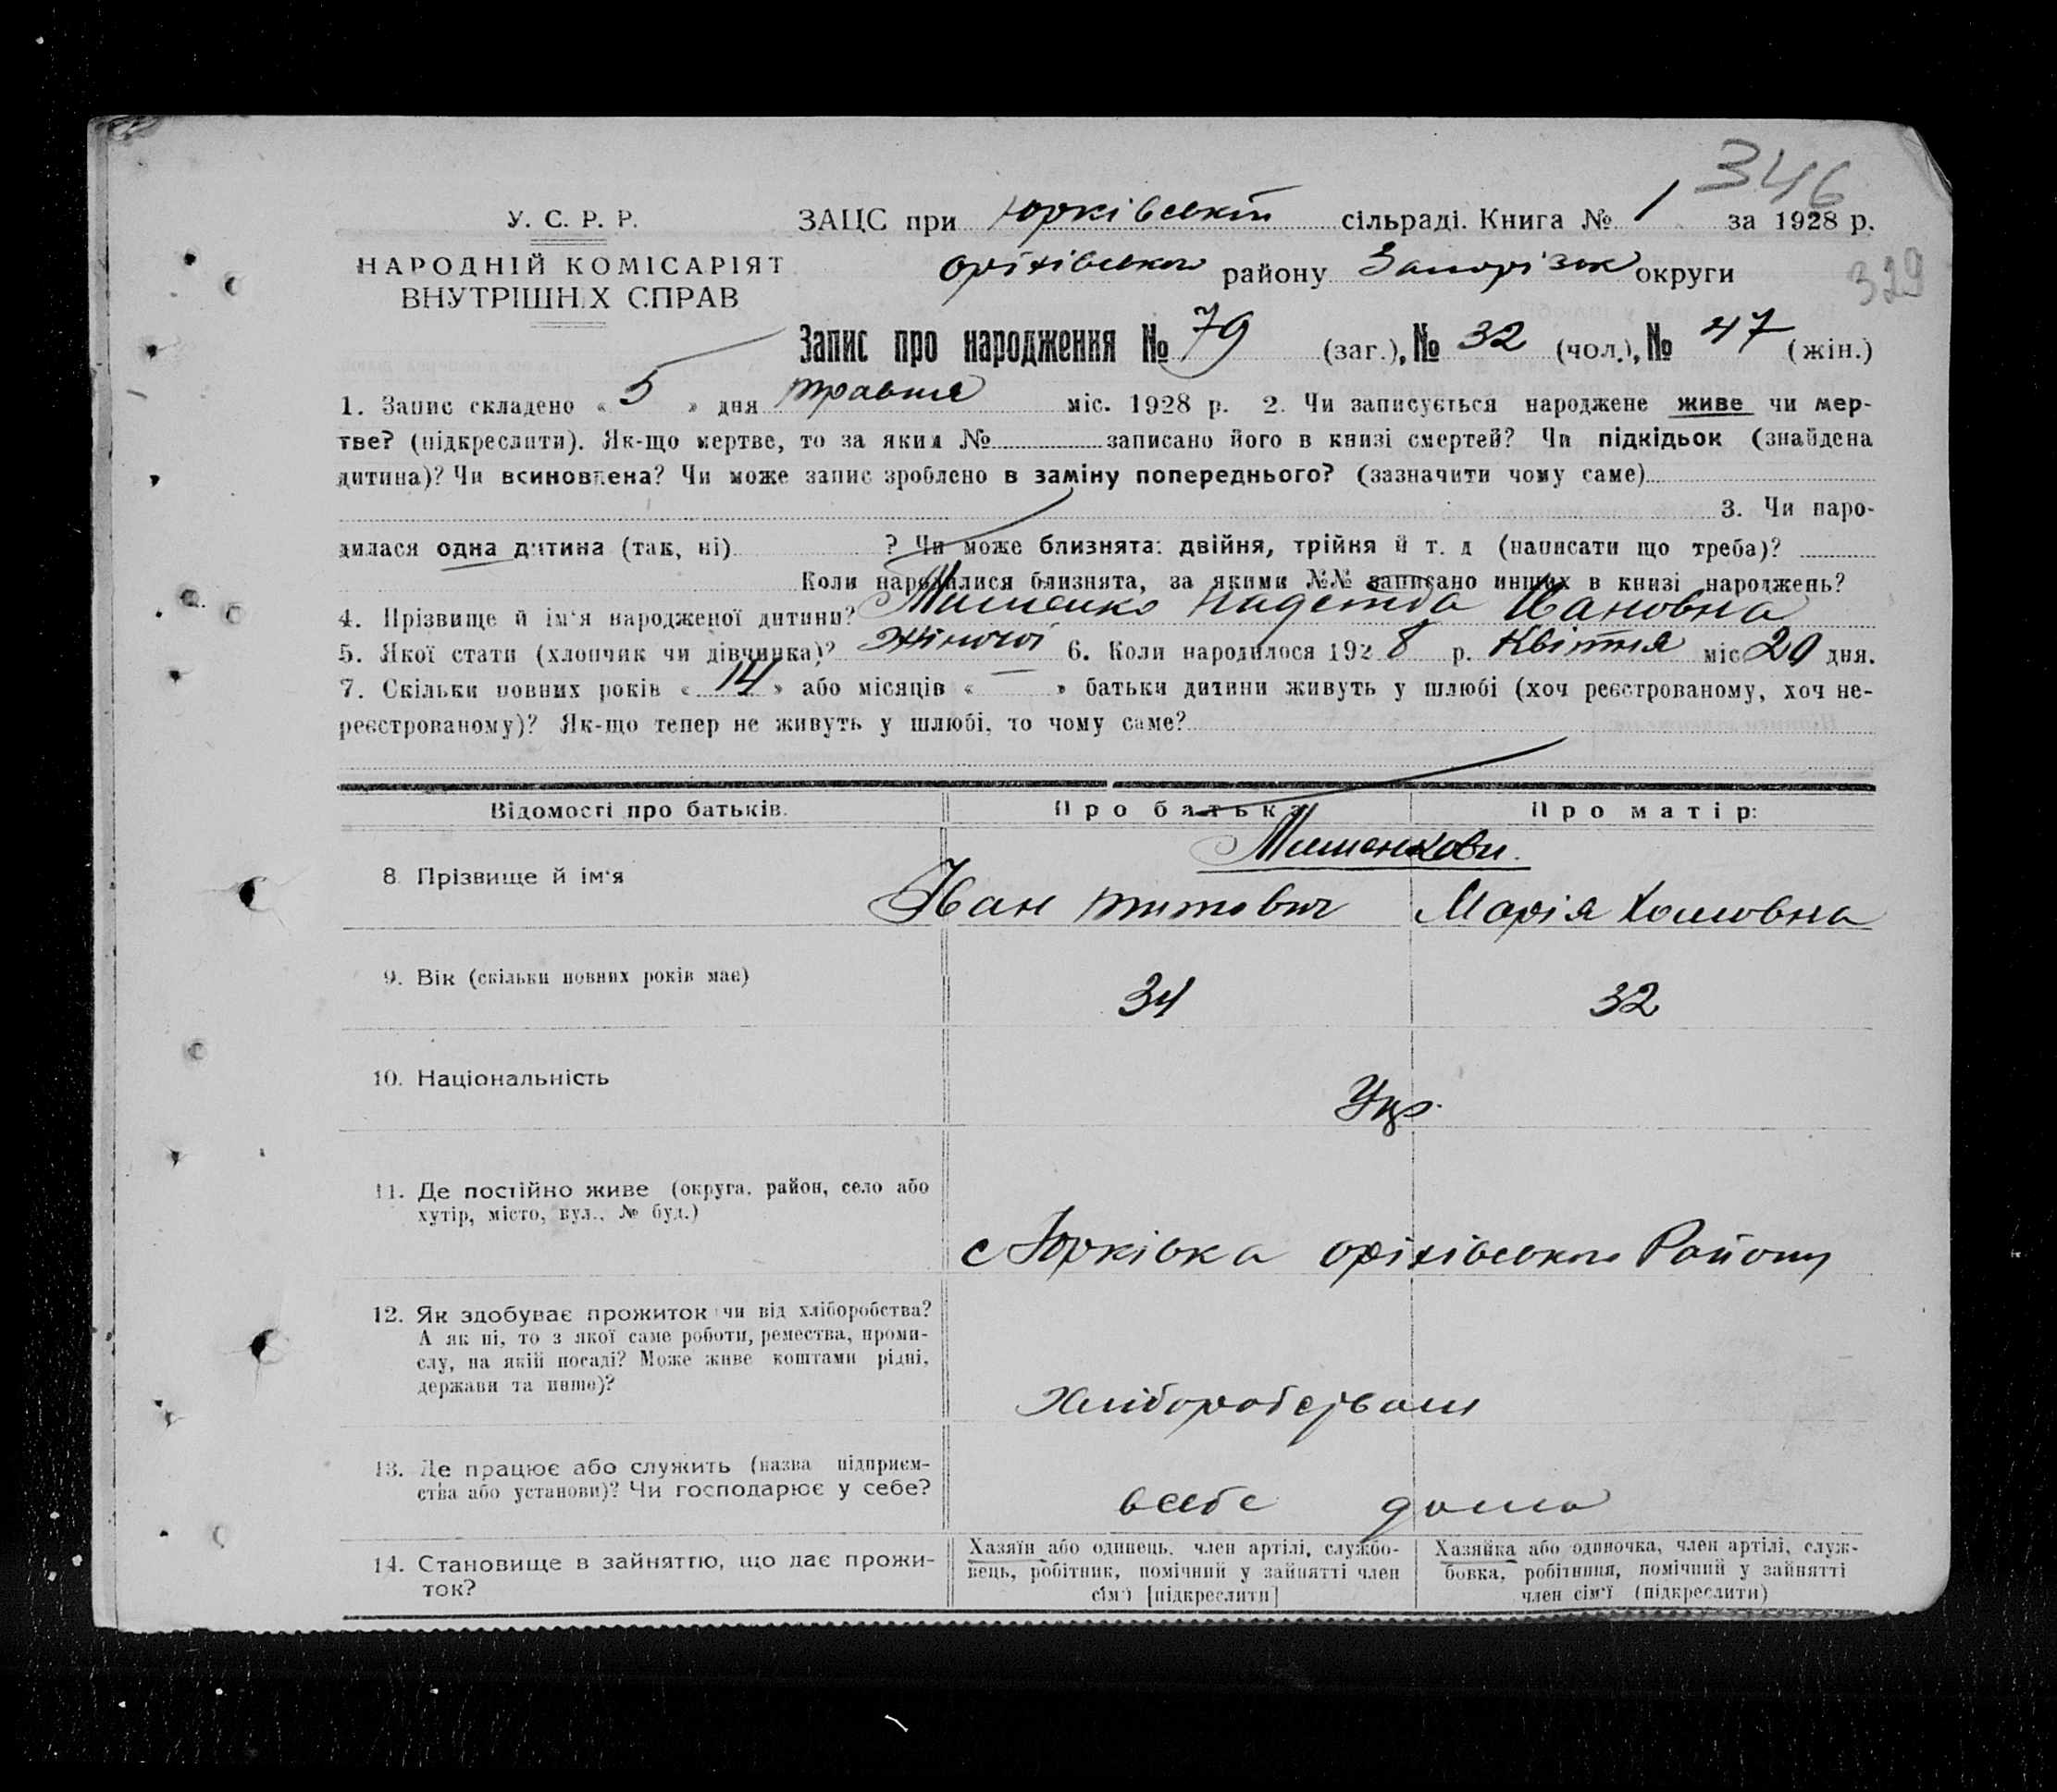 346
У. С. Р. Р. ЗАЦС при Юрківській сільраді. Книга № 1 за 1928 р.
НАРОДНІЙ КОМІСАРІЯТ Оріхівського району Запорізьк округи
329
ВНУТРІШНІХ СПРАВ
Запис про народження № 79 (заг.), № 32 (чол.), № 47 (жін.)
1. Запис складено « 5 » дня травня міс. 1928 р. 2. Чи записується народжене живе чи мер-
тве? (підкреслити). Як-що мертве, то за яким № записано його в книзі смертей? Чи підкідьок (знайдена
дитина)? Чи всиновлена? Чи може запис зроблено в заміну попереднього? (зазначити чому саме)
3. Чи наро-
дилася одна дитина (так, ні) ? Чи може близнята: двійня, трійня й т. д (написати що треба)?
Коли народилися близнята, за якими №№ записано инших в книзі народжень?
4. Прізвище й ім'я народженої дитини? Надежда Ивановна
5. Якої стати (хлопчик чи дівчинка)? жіночої 6. Коли народилося 1928 р. Квітня міс 20 дня.
7. Скільки повних років « 14 » або місяців « — » батьки дитини живуть у шлюбі (хоч реєстрованому, хоч не-
реєстрованому)? Як-що тепер не живуть у шлюбі, то чому саме?
Відомості про батьків. Про батька Про матір:
8. Прізвище й ім'я
Іван Титович Марія
9. Вік (скільки повних років має) 34 32
10. Національність Укр.
11. Де постійно живе (округа, район, село або
хутір, місто, вул., № буд.)
с Юрківка Оріхівського Району
12. Як здобуває прожиток чи від хліборобства?
А як ні, то з якої саме роботи, ремества, проми-
слу, на якій посаді? Може живе коштами рідні,
держави та инше)?
Хліборобством
13. Де працює або служить (назва підприєм-
ства або установи)? Чи господарює у себе?
в себе дома
14. Становище в зайняттю, що дає прожи-
ток?
Хазяїн або одинець, член артілі, службо-
вець, робітник, помічний у зайнятті член
сім'ї [підкреслити]
Хазяйка або одиночка, член артілі, служ-
бовка, робітниця, помічний у зайнятті
член сім'ї (підкреслити)